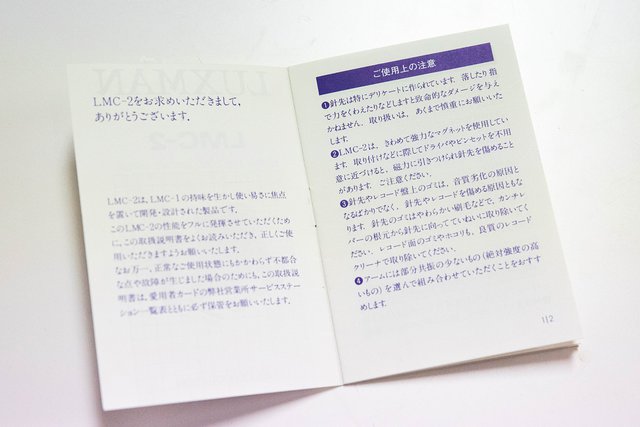 LMC-2をお求めいただきまして、
ありがとうございます。
LMC-2は、LMC-1の持味を生かし使い易さに焦点
を置いて開発・設計された製品です。
このLMC-2の性能をフルに発揮させていただくため
に、この取扱説明書をよくお読みいただき、正しくご使
用いただきますようお願いいたします。
なお万一、正常なご使用状態にもかかわらず不都合
な点や故障が生じました場合のためにも、この取扱説
明書は、愛用者カードの弊社営業所サービスステー
ション一覧表とともに必ず保管をお願いいたします。
ご使用上の注意
❶針先は特にデリケートに作られています。落したり指
で力をくわえたりなどしますと致命的なダメージを与え
かねません。取り扱いは、あくまで慎重にお願いいた
します。
❷LMC-2は、きわめて強力なマグネットを使用してい
ます。取り付けなどに際してドライバやピンセットを不用
意に近づけると、磁力に引きつけられ針先を傷めること
があります。ご注意ください。
❸針先やレコード盤上のゴミは、音質劣化の原因と
なるばかりでなく、針先やレコードを傷める原因ともな
ります。針先のゴミはやわらかい刷毛などで、カンチレ
バーの根元から針先に向ってていねいに取り除いてく
ださい。レコード面のゴミやホコリも、良質のレコード
クリーナで取り除いてください。
❹アームには部分共振の少ないもの(絶対強度の高
いもの)を選んで組み合わせていただくことをおすす
めします。
1/2
LUXMAN
LMC-2